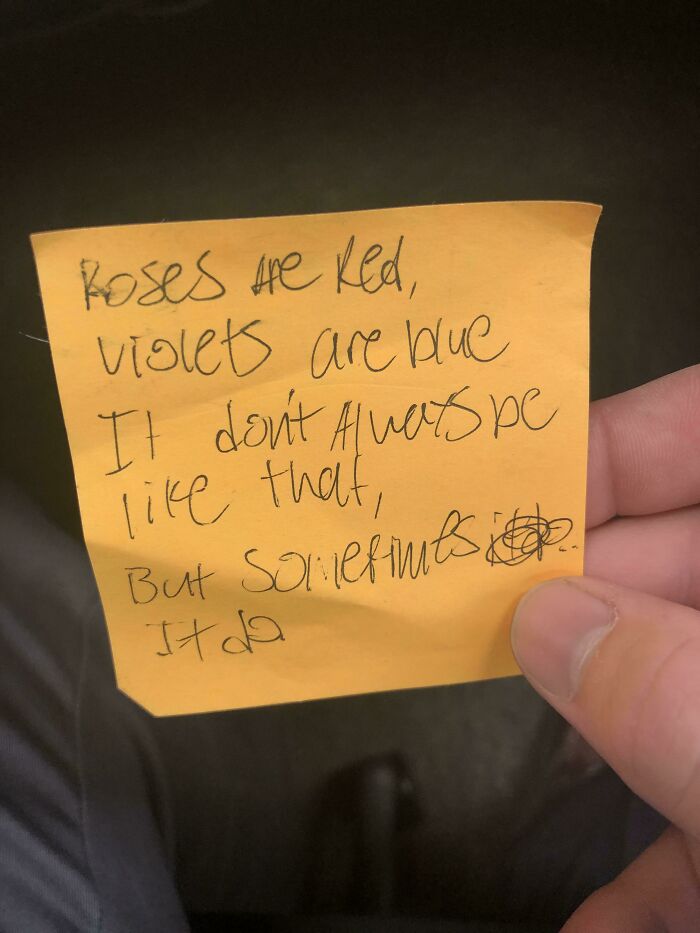 Roses Are Red,
violets are blue
It don't Always be
like that,
But sometimes ..
It do